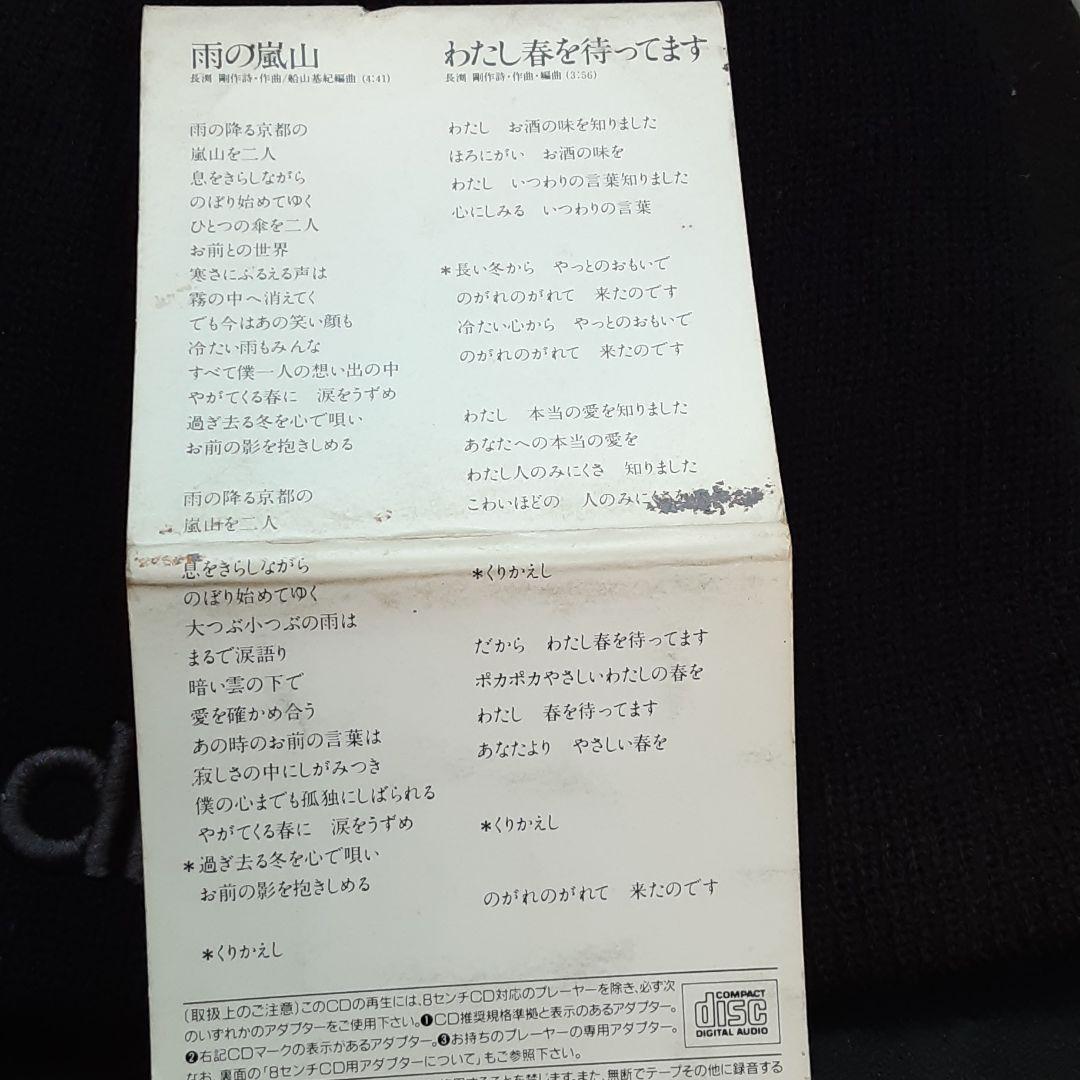 雨の嵐山
長渕 剛作詩・作曲/船山基紀編曲 (4:41)
雨の降る京都の
嵐山を二人
息をきらしながら
のぼり始めてゆく
ひとつの傘を二人
お前との世界
寒さにふるえる声は
霧の中へ消えてく
でも今はあの笑い顔も
冷たい雨もみんな
すべて僕一人の想い出の中
やがてくる春に 涙をうずめ
過ぎ去る冬を心で唄い
お前の影を抱きしめる
雨の降る京都の
嵐山を二人
息をきらしながら
のぼり始めてゆく
大つぶ小つぶの雨は
まるで涙語り
暗い雲の下で
愛を確かめ合う
あの時のお前の言葉は
寂しさの中にしがみつき
僕の心までも孤独にしばられる
やがてくる春に 涙をうずめ
*過ぎ去る冬を心で唄い
お前の影を抱きしめる
*くりかえし
わたし春を待ってます
長渕 剛作詩・作曲・編曲 (3:56)
わたし お酒の味を知りました
ほろにがい お酒の味を
わたし いつわりの言葉知りました
心にしみる いつわりの言葉
*長い冬から やっとのおもいで
のがれのがれて 来たのです
冷たい心から やっとのおもいで
のがれのがれて 来たのです
わたし 本当の愛を知りました
あなたへの本当の愛を
わたし人のみにくさ 知りました
こわいほどの 人のみに
*くりかえし
だから わたし春を待ってます
ポカポカやさしいわたしの春を
わたし 春を待ってます
あなたより やさしい春を
*くりかえし
のがれのがれて 来たのです
(取扱上のご注意)このCDの再生には、8センチCD対応のプレーヤーを除き、必ず次
のいずれかのアダプターをご使用下さい。❶CD推奨規格準拠と表示のあるアダプター。
❷右記CDマークの表示があるアダプター。❸お持ちのプレーヤーの専用アダプター。
なお、裏面の「8センチCD用アダプターについて」もご参照下さい。
COMPACT
disc
DIGITAL AUDIO
することを禁じます。また、無断でテープその他に録音する